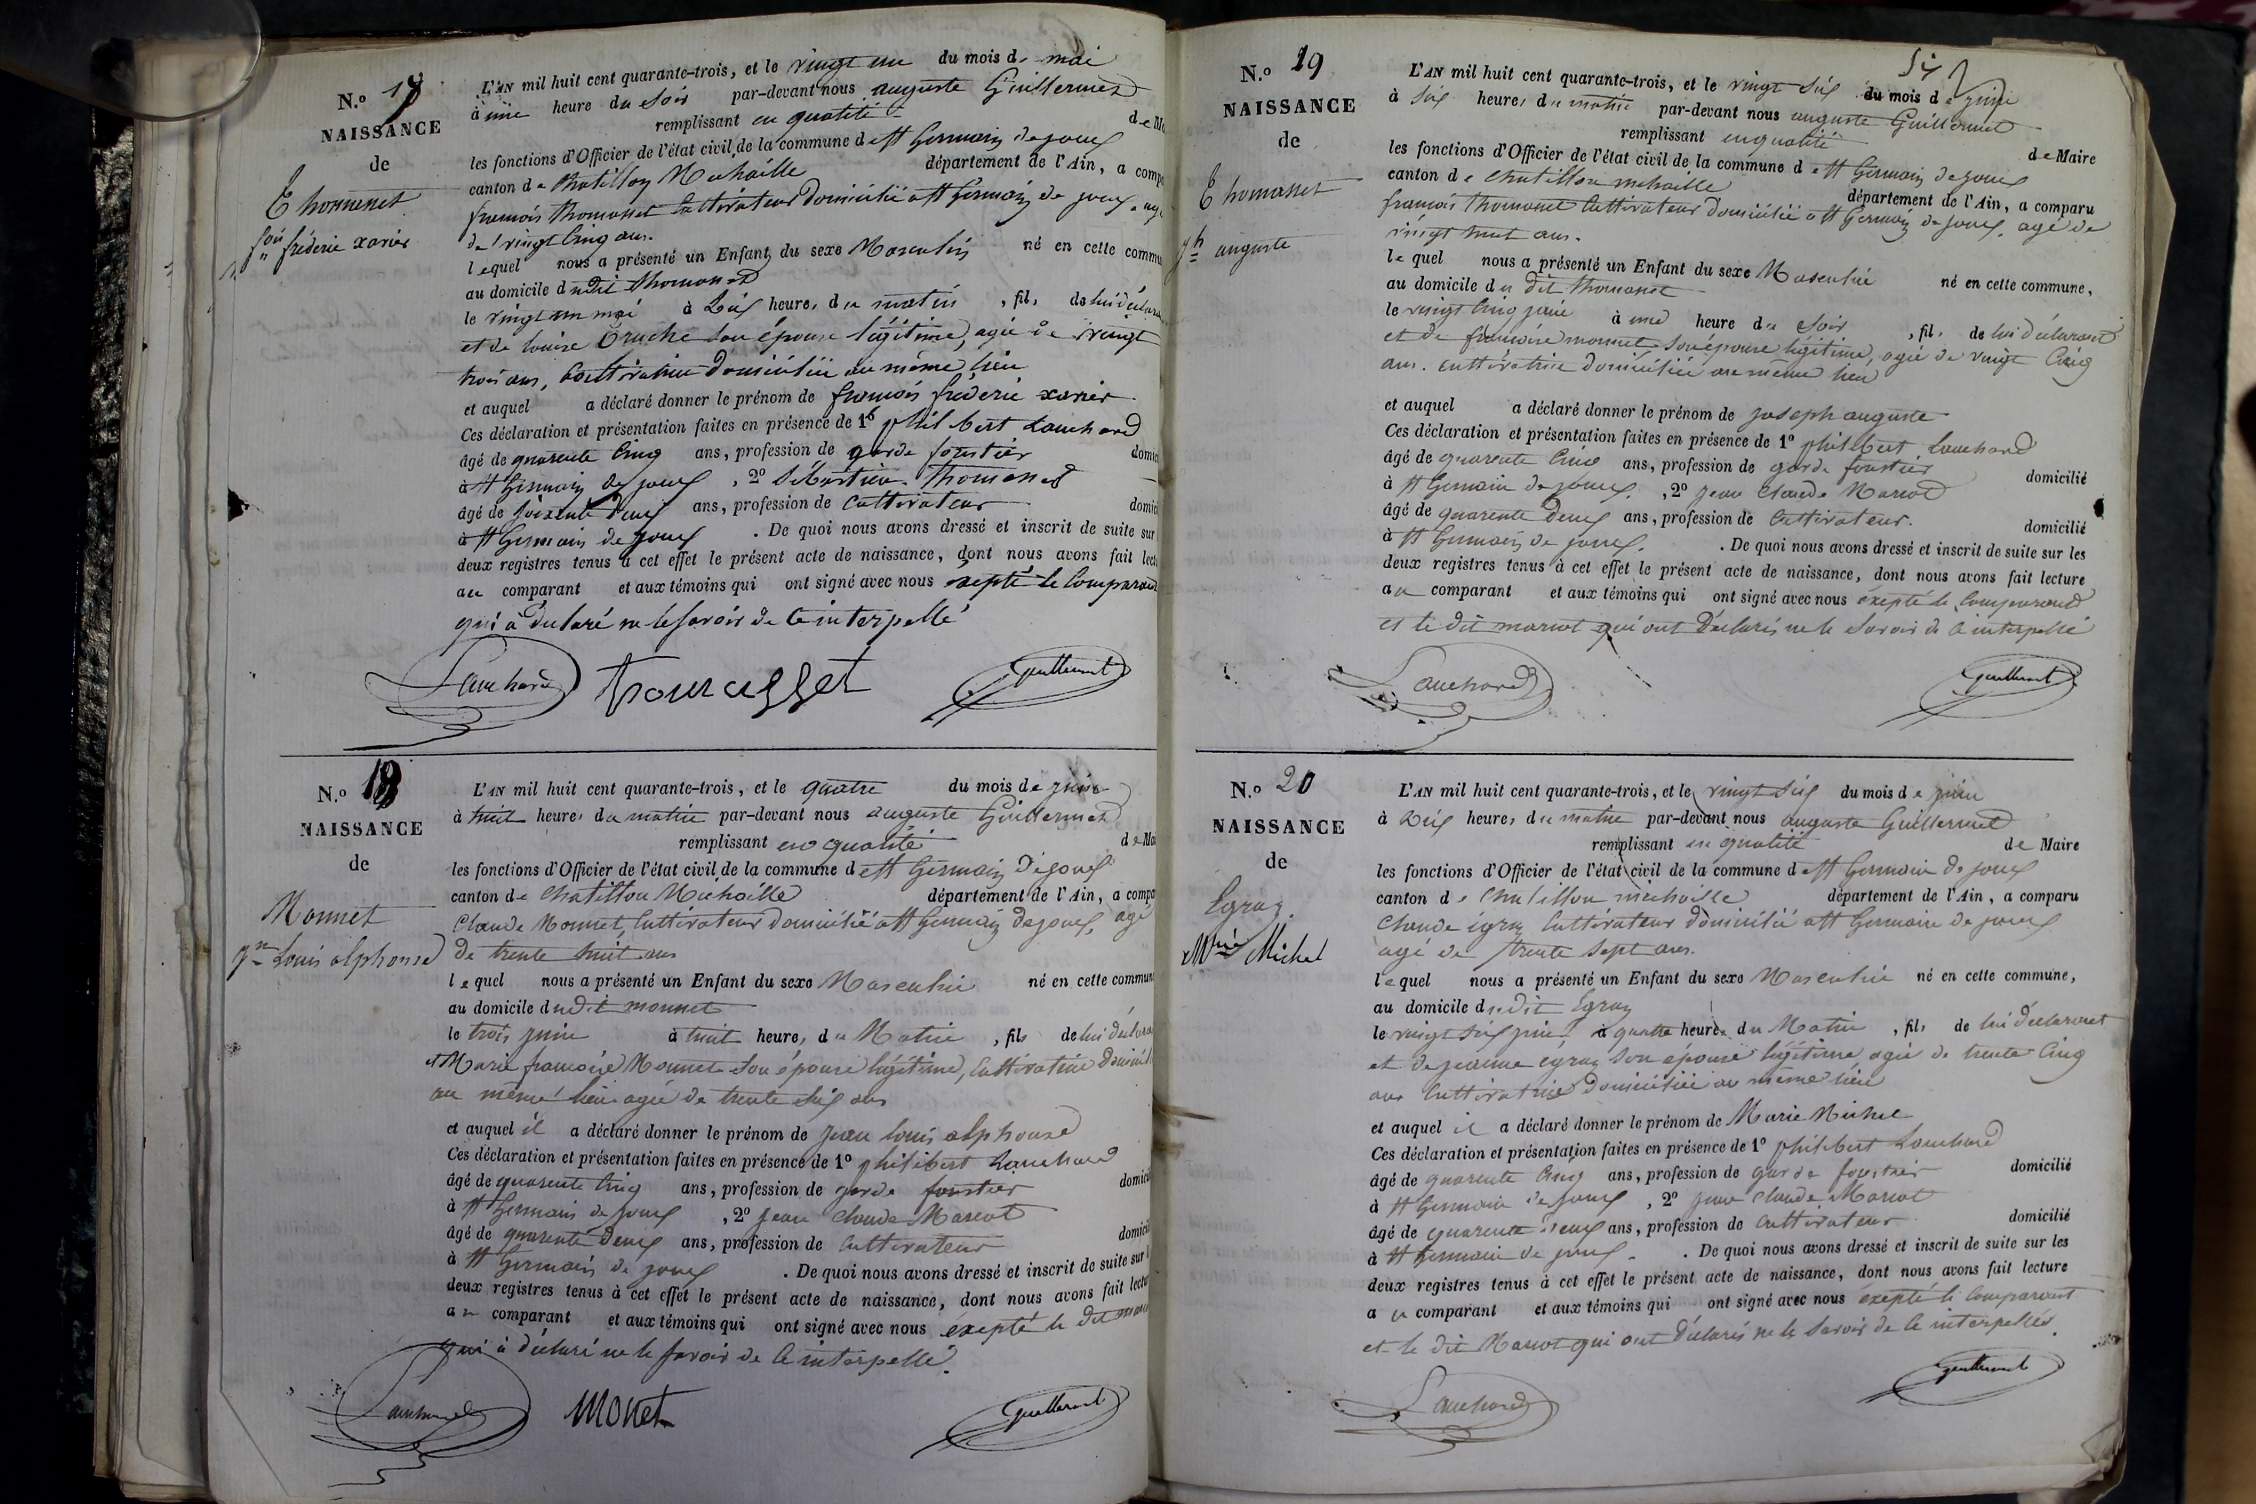 N.º 17
NAISSANCE
de
Thomasset
fois frédéric xavier
L'AN mil huit cent quarante-trois, et le vingt un du mois de mai
à une heure du soir par-devant nous auguste Guillermet
remplissant en qualité de Ma
les fonctions d'Officier de l'état civil de la commune de St Germain de joux
canton de Chatillon Michaille département de l'Ain, a compa
françois thomasset Cultivateur domicilié a St Germain de joux, agé
de vingt Cinq ans.
lequel nous a présenté un Enfant du sexe Masculin né en cette commu
au domicile du dit thomasset
le vingt un mai à Dix heures du matin, fils de lui déclara
et de louise Bruche son épouse légitime, agée de vingt
trois ans, Cultivatrice domiciliée au même lieu
et auquel a déclaré donner le prénom de françois fréderic xavier
Ces déclaration et présentation faites en présence de 1º philibert Lanchard
âgé de quarente Cinq ans, profession de garde forestier domici
à St Germain de joux, 2º Sébastien Thomasset
âgé de soixente deux ans, profession de Cultivateur domici
à St Germain de joux. De quoi nous avons dressé et inscrit de suite sur
deux registres tenus à cet effet le présent acte de naissance, dont nous avons fait lectu
au comparant et aux témoins qui ont signé avec nous éxepté le Comparant
qui a déclaré ne le savoir de Ce interpellé
Lanchard thomasset Guillermet
N.º 18
NAISSANCE
de
Monnet
jn Louis alphonse
L'AN mil huit cent quarante-trois, et le quatre du mois de juin
à huit heures du matin par-devant nous auguste Guillermet
remplissant en qualité de Mai
les fonctions d'Officier de l'état civil de la commune de St Germain de joux
canton de Chatillon Michaille département de l'Ain, a compa
Claude Monnet, Cultivateur domicilié a St Germain de joux, agé
de trente huit ans
lequel nous a présenté un Enfant du sexe Masculin né en cette commune
au domicile du dit monnet
le trois juin à huit heures du Matin, fils de lui déclara
et Marie françoise Monnet son épouse légitime, Cultivatrice domicil
au même lieu agée de trente six ans
et auquel il a déclaré donner le prénom de jean louis alphonse
Ces déclaration et présentation faites en présence de 1º philibert Lanchard
âgé de quarente Cinq ans, profession de garde forestier domicil
à St Germain de joux, 2º jean Claude Marcot
âgé de quarente deux ans, profession de Cultivateur domicil
à St Germain de joux. De quoi nous avons dressé et inscrit de suite sur l
deux registres tenus à cet effet le présent acte de naissance, dont nous avons fait lectu
au comparant et aux témoins qui ont signé avec nous éxepté le dit mar
qui a déclaré ne le savoir de Ce interpellé.
Lanchard Monet Guillermet
N.º 19
NAISSANCE
de
Thomasset
jh auguste
L'AN mil huit cent quarante-trois, et le vingt six du mois de juin
à six heures du matin par-devant nous auguste Guillermet
remplissant en qualité de Maire
les fonctions d'Officier de l'état civil de la commune de St Germain de joux
canton de Chatillon michaille département de l'Ain, a comparu
françois thomasset Cultivateur domicilié a St Germain de joux, agé de
vingt huit ans.
lequel nous a présenté un Enfant du sexe Masculin né en cette commune,
au domicile du dit thomasset
le vingt Cinq juin à une heure du soir, fils de lui déclarant
et de françoise monnet son épouse légitime, agée de vingt Cinq
ans. cultivatrice domiciliée au même lieu
et auquel a déclaré donner le prénom de joseph auguste
Ces déclaration et présentation faites en présence de 1º philibert Lanchard
âgé de quarente Cinq ans, profession de garde forestier domicilié
à St Germain de joux, 2º jean Claude Marcot
âgé de quarente deux ans, profession de Cultivateur. domicilié
à St Germain de joux. De quoi nous avons dressé et inscrit de suite sur les
deux registres tenus à cet effet le présent acte de naissance, dont nous avons fait lecture
au comparant et aux témoins qui ont signé avec nous éxepté le Comparant
et le dit marcot qui ont déclarés ne le savoir de Ce interpellé
Lanchard Guillermet
N.º 20
NAISSANCE
de
Egraz
Mrie Michel
L'AN mil huit cent quarante-trois, et le vingt six du mois de juin
à Dix heures du matin par-devant nous auguste Guillermet
remplissant en qualité de Maire
les fonctions d'Officier de l'état civil de la commune de St Germain de joux
canton de Chatillon michaille département de l'Ain, a comparu
Claude égraz Cultivateur domicilié a St Germain de joux
agé de trente sept ans.
lequel nous a présenté un Enfant du sexe Masculin né en cette commune,
au domicile du dit Egraz
le vingt six juin à quatre heures du Matin, fils de lui déclarant
et de jeanne egraz son épouse légitime agée de trente Cinq
ans Cultivatrice domiciliée au même lieu
et auquel il a déclaré donner le prénom de Marie Michel
Ces déclaration et présentation faites en présence de 1º philibert Lanchard
âgé de quarente Cinq ans, profession de garde forestier domicilié
à St Germain de joux, 2º jean Claude Marcot
âgé de quarente deux ans, profession de Cultivateur domicilié
à St Germain de joux. De quoi nous avons dressé et inscrit de suite sur les
deux registres tenus à cet effet le présent acte de naissance, dont nous avons fait lecture
au comparant et aux témoins qui ont signé avec nous éxepté le Comparant
et le dit Marcot qui ont déclarés ne le savoir de Ce interpellés.
Lanchard Guillermet